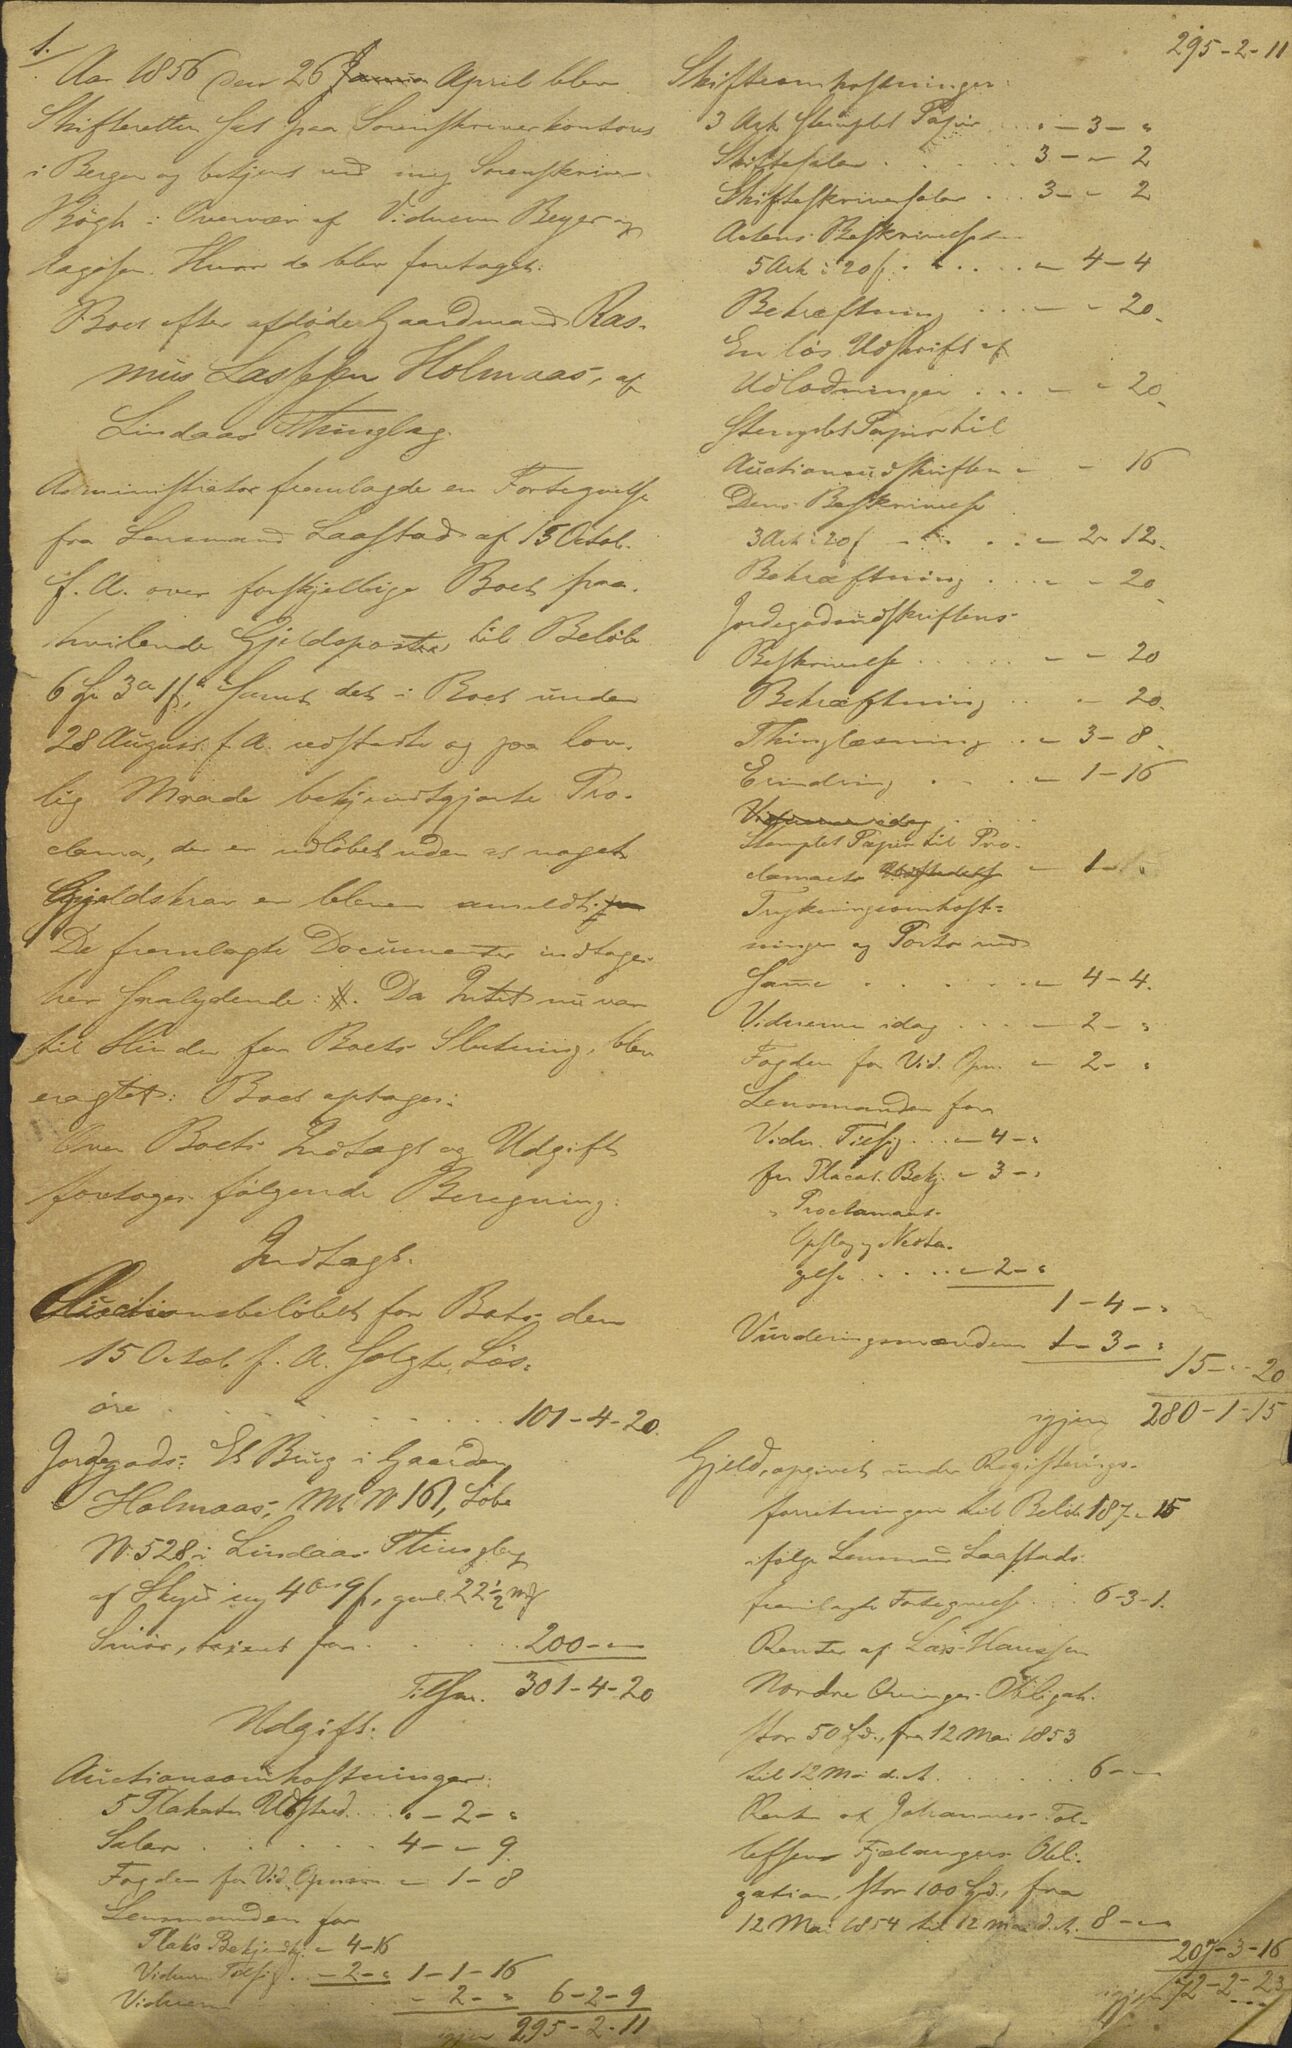 1.
Aar 1856 den 26 Janua April blev
Skifteretten sat paa Sorenskriverkontoret
i Bergen og betjent ved mig Sorenskriver
Kögh i Overvær af Vidnerne Beyer og
Aagesen. Hvor da blev foretaget:
Boet efter afdøde Gaardmand Ras-
mus Lassesen Holmaas, af
Lindaas Thinglag.
Administrator fremlagde en Fortegnelse
fra Lensmand Laastad af 15 Octob.
f. A. over forskjellige Boet paa-
hvilende Gjeldsposter til Beløb
6 Spd 3 ort 1 s, samt det i Boet under
28 August f. A. udstedte og paa lov-
lig Maade bekjendtgjorte Pro-
clama, der er udløbet uden at noget
Gjeldskrav er bleven anmeldt.
De fremlagte Documenter indtages
her saalydende: #. Da Intet nu var
til Hinder for Boets Slutning, blev
eragtet: Boet optages:
Over Boets Indtægt og Udgift
foretages følgende Beregning:
Indtægt.
Auctionsbeløbet for Boets den
15 Octob. f. A. solgte Løs-
øre . . . . . . . 101-4-20.
Jordegods: Et Brug i Gaarden
Holmaas, Mt. N 161, Løbe
N. 528 i Lindaas Thinglag
af Skyld ny 4 ort 9 s, gml. 22 1/2 mrk
Smør, taxeret for . . . . 200-"-"
Tilsm. 301-4-20
Udgift.
Auctionsomkostninger:
5 Plakater Udsted. . . "-2-"
Salær . . . . . 4-"-9
Fogden for Vid. Opnævn "-1-8
Lensmanden for
Plak's Bekjendtg. "-4-16
Vidners Tilsig. . "-2-" 1-1-16
Vidnerne . . . . "-2-" 6-2-9
igjen 295-2-11
295-2-11
Skifteomkostninger:
3 Ark stemplet Papir . . . "-3-"
Skiftesalær . . . . . 3-"-2
Skifteskriversalær . . . 3-"-2
Actens Beskrivelse
5 Ark à 20 s. . . . . . "-4-4
Bekræftning . . . "-"-20.
En løs Udskrift af
Udlodningen . . . "-"-20.
Stemplet Papir til
Auctionsudskriften "-"-16
Dens Beskrivelse
3 Ark à 20 s . . . . "-2-12.
Bekræftning . . . "-"-20.
Jordegodsudskriftens
Beskrivelse . . . . . "-"-20
Bekræftning . . "-"-20.
Thinglæsning . . "-3-8.
Erindring . . . . "-1-16
Vidnerne idag . . .
Stemplet Papir til Pro-
clamaets "-1-"
Trykningsomkost-
ninger og Porto med
Samme . . . . . . "-4-4.
Vidnerne idag . . . . "-2-"
Fogden for Vid. Opn. "-2-"
Lensmanden for
Vidn. Tilsig. . . "-4-"
for Placat. Bekj. "-3-"
" Proclamaets
Opslag og Nedta-
gelse . . . . . "-2-"
1-4-"
Vurderingsmændene 1-3-"
15-"-20
igjen 280-1-15
Gjeld, opgivet under Registrerings-
forretningen til Beløb 187-"-15
ifølge Lensmand Laastads
fremlagte Fortegnelse . . . 6-3-1.
Renter af Lars Hanssen
Nordre Qvinges Obligat.
stor 50 Spd., fra 12 Mai 1853
til 12 Mai d. A. . . . . . . 6-"-"
Renter af Johannes Tol-
lefsen Fjelangers Obli-
gation, stor 100 Spd., fra
12 Mai 1854 til 12 Mai d. A. 8-"-"
207-3-16
igjen 72-2-23